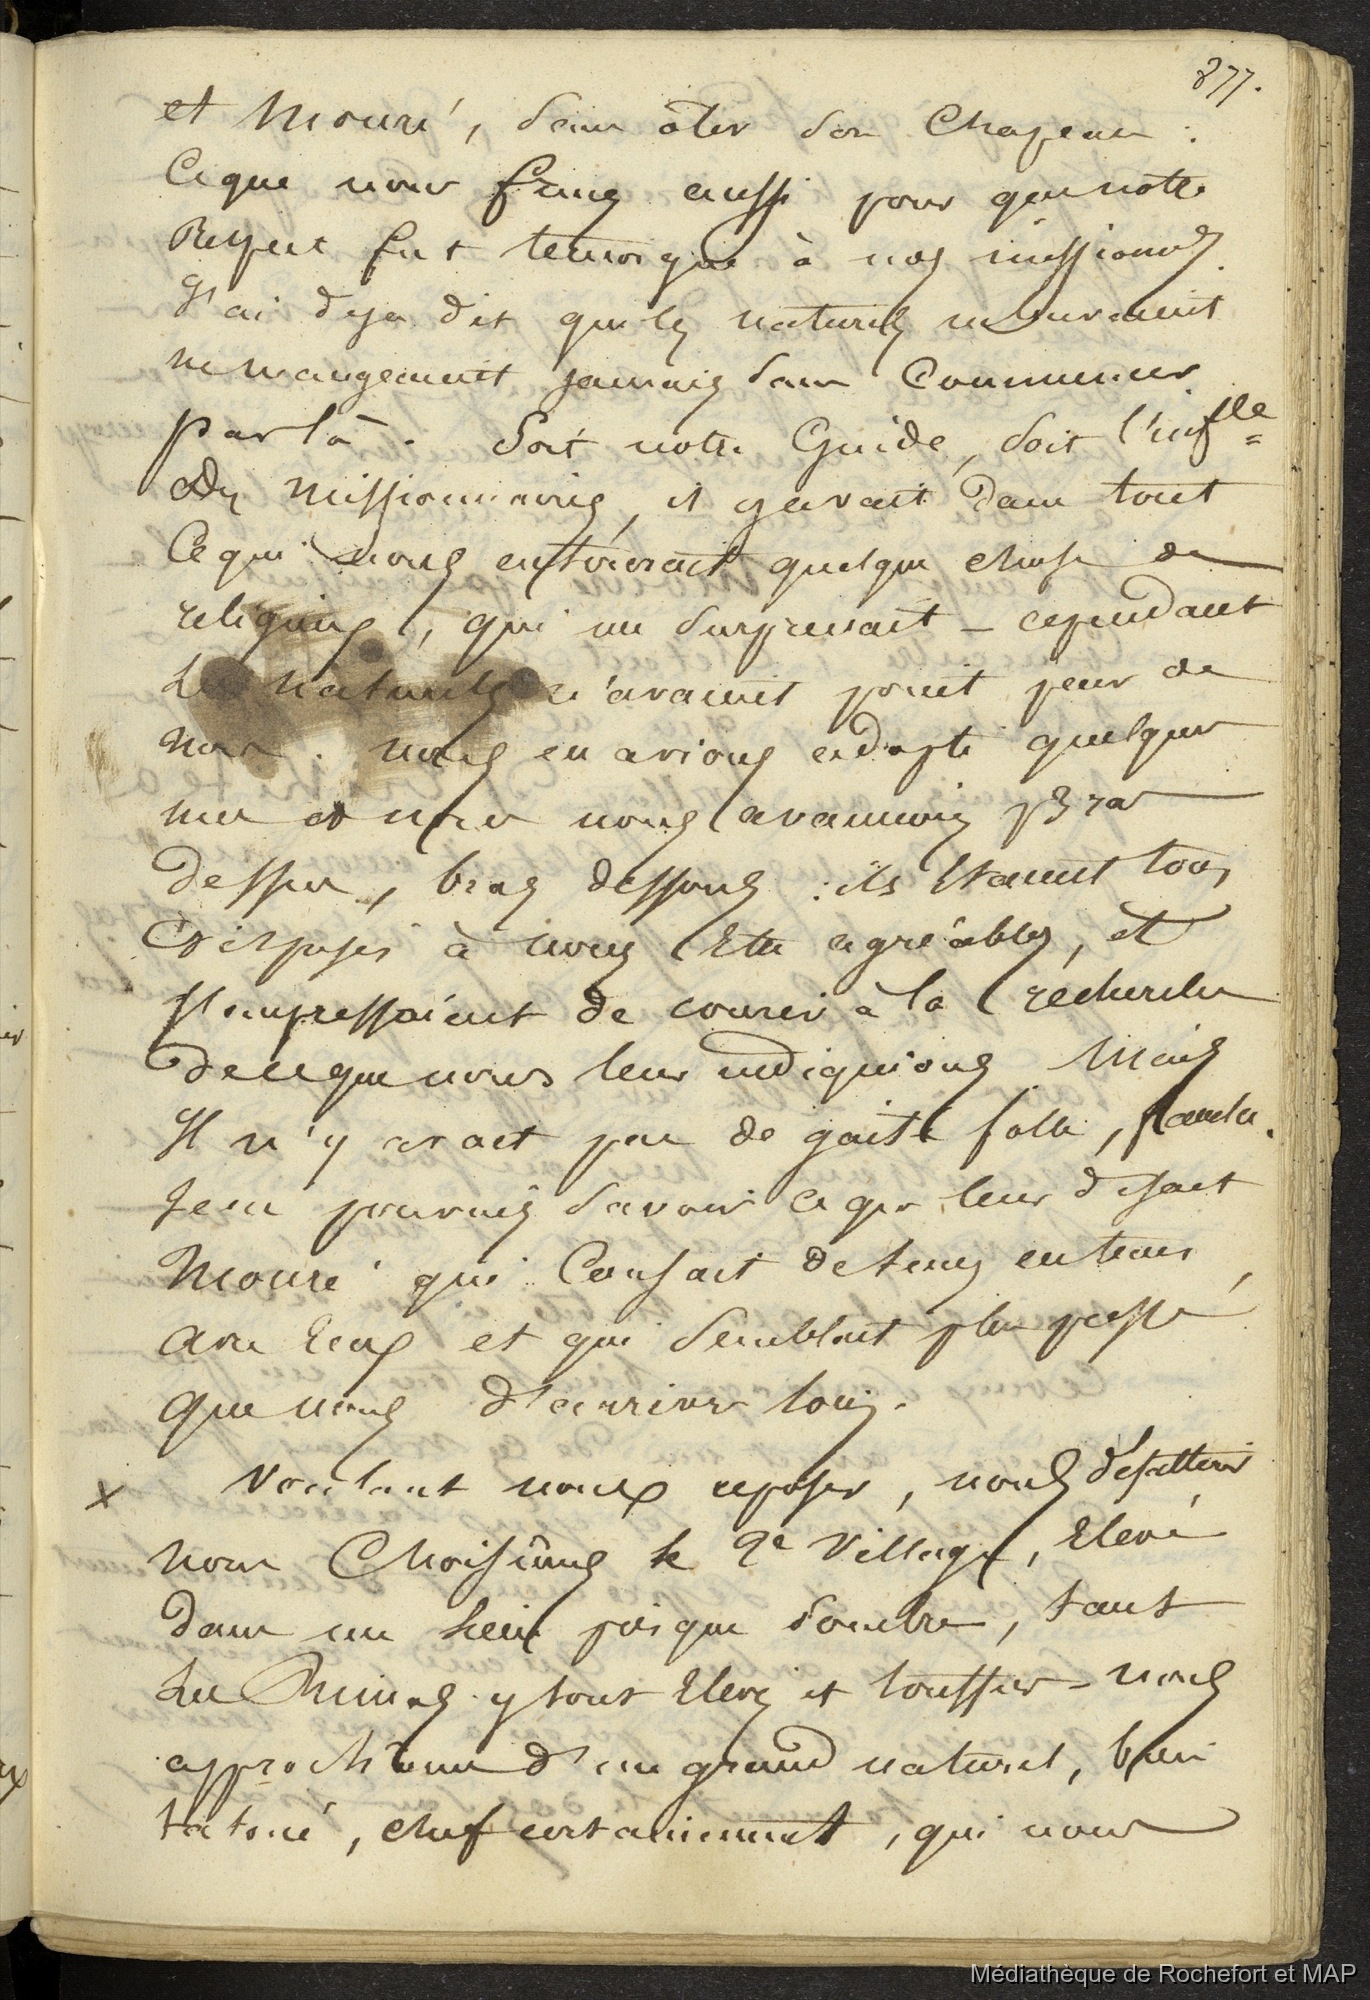 377.
et Mouré, sans ôter son Chapeau :
Ceque nous fimes aussi pour que notre
Respect fut temoigné à nos missionres.
J'ai deja dit que les naturels ne buvaient
ne mangeaient jamais sans Commencer
par là. Soit notre Guide, soit l'infle =
des Missionnaires, il y avait dans tout
Cequi nous entourait quelque chose de
religieux, qui me surprenait _ cependant
Les naturels n'avaient point peur de
nous. nous en avions adopté quelques
uns et nous nous avancions bras
dessus, bras dessous : ils étaient tous
disposés à nous être agréables, et
s'empressaient de courir à la recherche
deceque nous leur indiquions Mais
Il n'y avait pas de gaité folle, franche.
Je ne pouvais savoir ce que leur disait
Mouré qui Causait de tems en tems,
avec Eux et qui semblait plus pressé
que nous d'arriver loin.
x Voulant nous reposer, nous désaltérer
nous Choisîmes le 2e Village, Elevé
dans un lieu presque sombre, tant
Les arbres y sont Elevés et touffus - nous
approchâmes d'un grand naturel, bien
tatoué, chef certainement, qui nous
Médiathèque de Rochefort et MAP